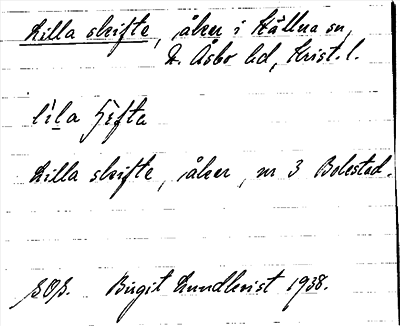 Lilla skifte, åker i Källna sn,
N. Åsbo hd, Krist. l.
Lilla skifte, åker, nr 3 Bolestad.
Birgit Lundkvist 1938.